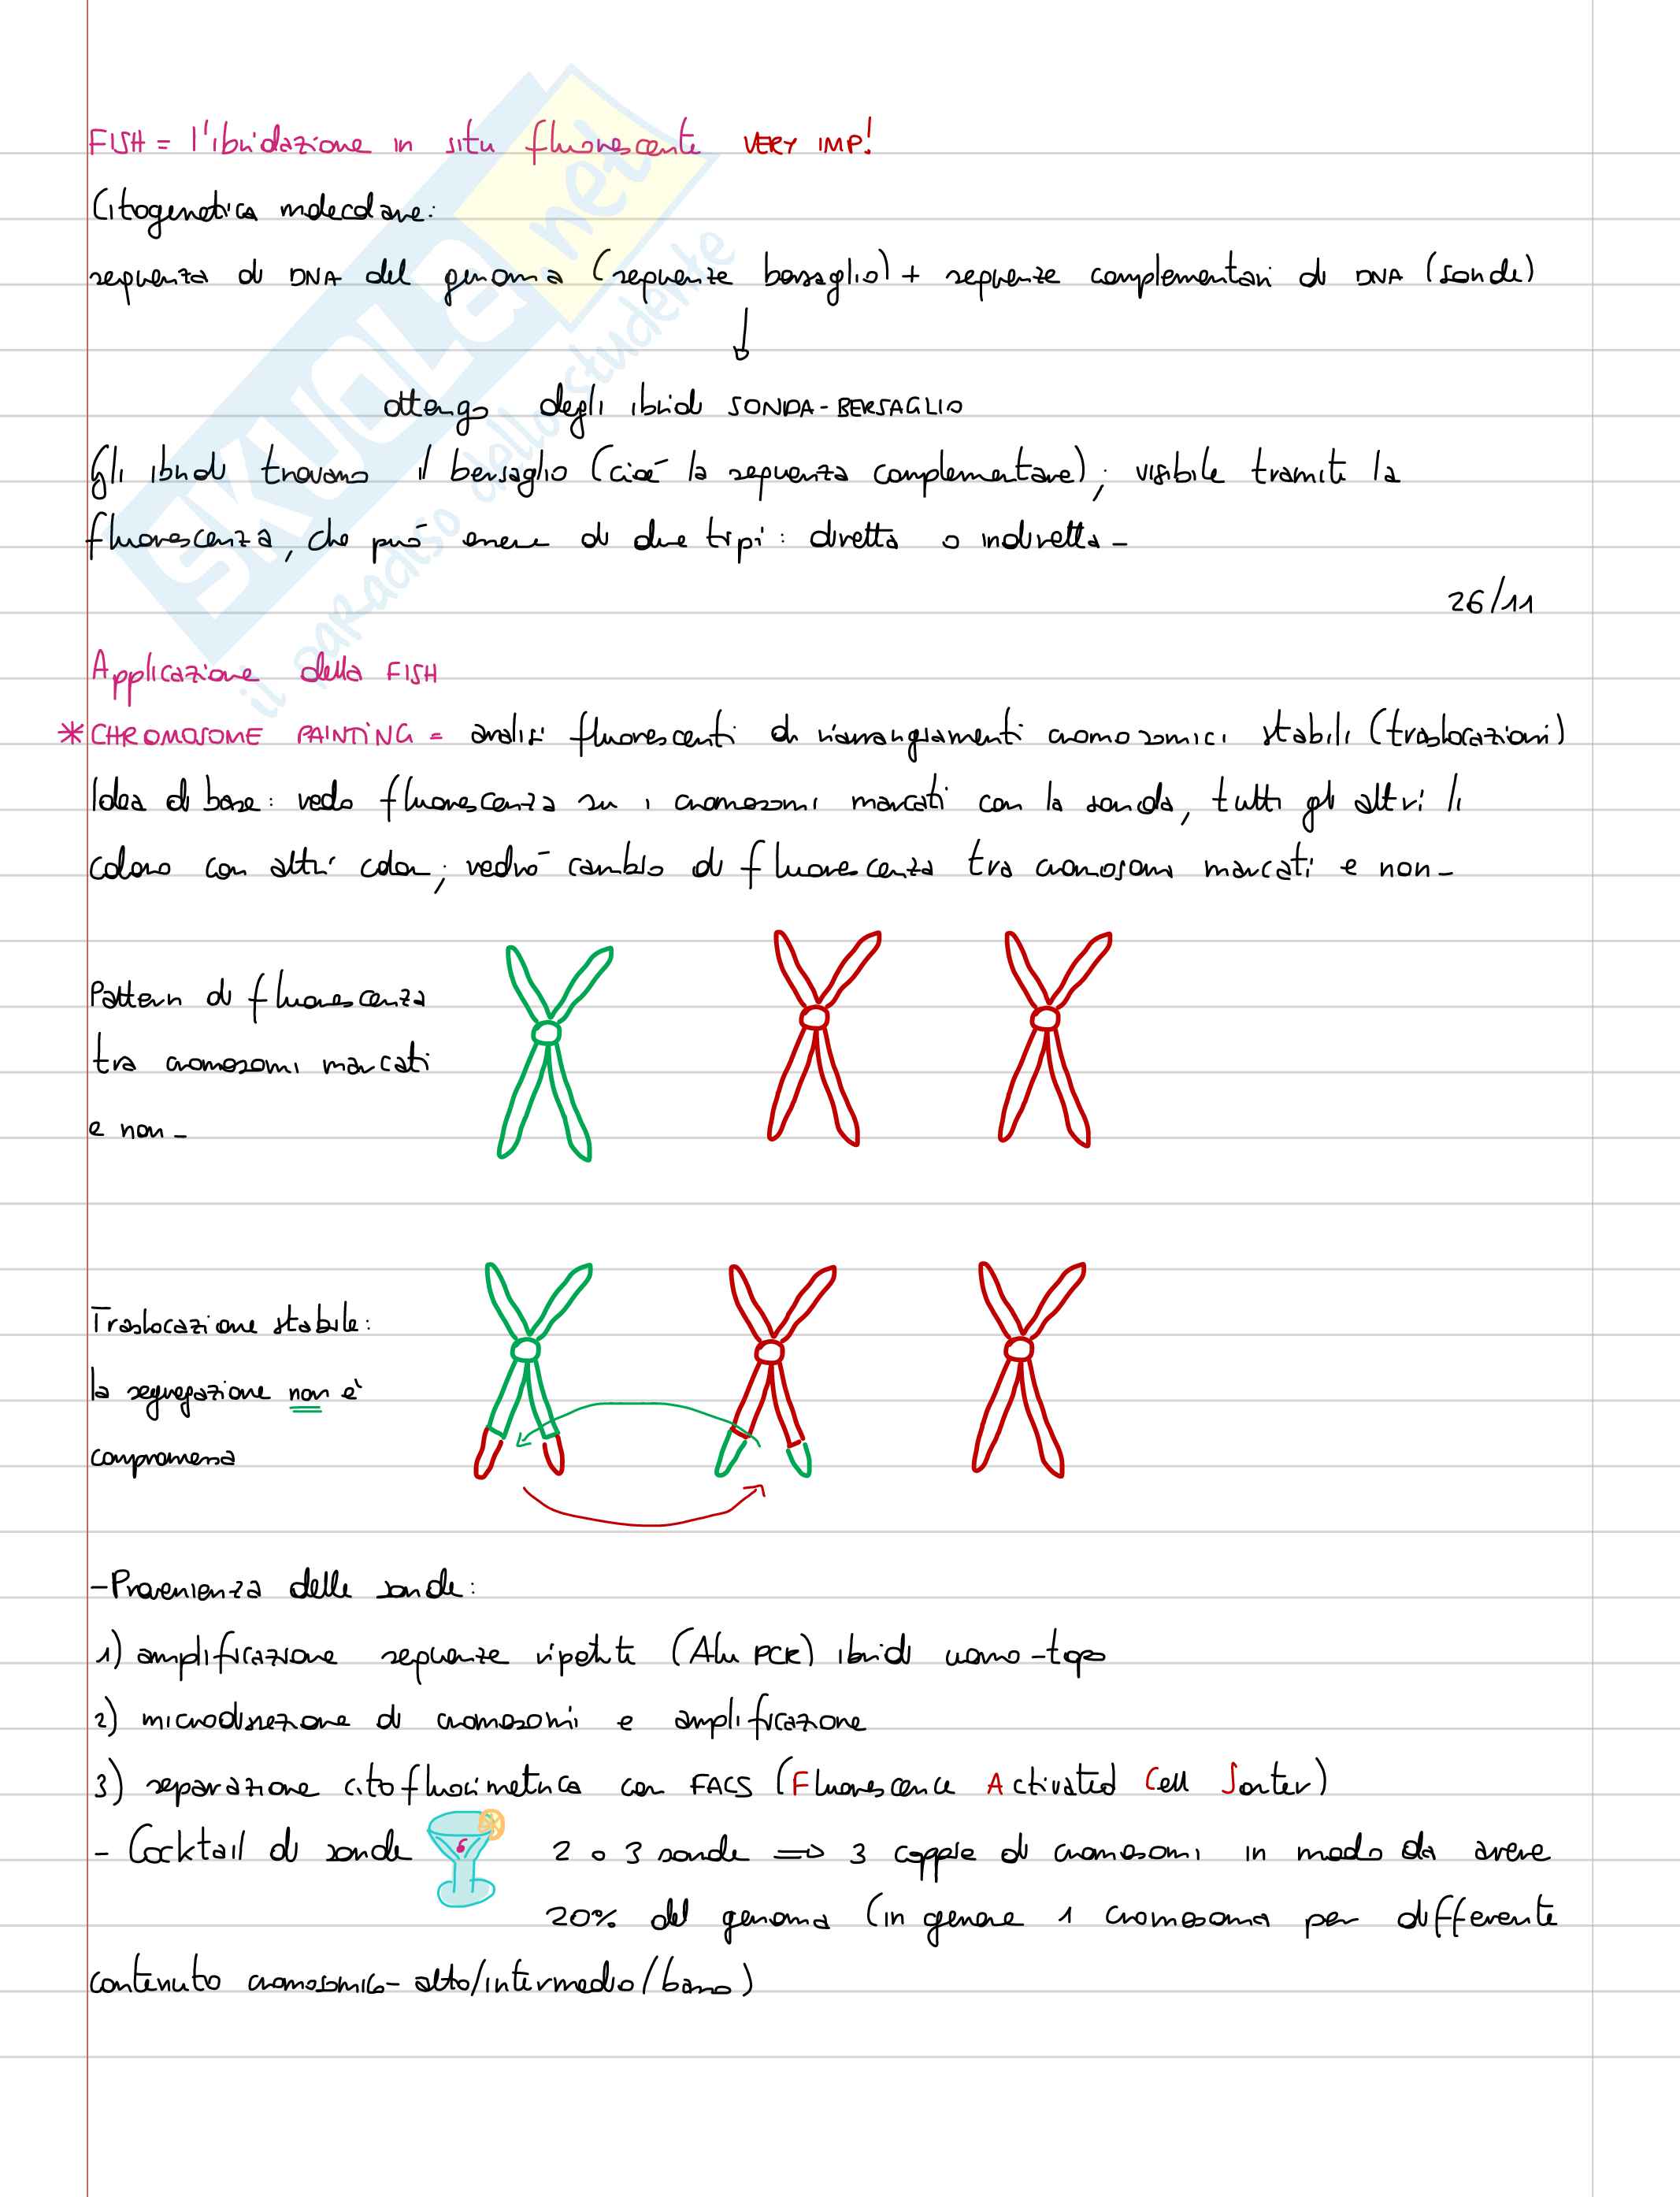 FISH = l'ibridazione in situ fluorescente VERY IMP!
Citogenetica molecolare:
sequenza di DNA del genoma (sequenze bersaglio) + sequenze complementari di DNA (sonde)
ottengo degli ibridi SONDA-BERSAGLIO
Gli ibridi trovano il bersaglio (cioè la sequenza complementare); visibile tramite la
fluorescenza, che può essere di due tipi: diretta o indiretta-
26/11
Applicazione della FISH
*CHROMOSOME PAINTING = analisi fluorescenti di riarrangiamenti cromosomici stabili (traslocazioni)
Idea di base: vedo fluorescenza su i cromosomi marcati con la sonda, tutti gli altri li
coloro con altri colori; vedrò cambio di fluorescenza tra cromosomi marcati e non-
Pattern di fluorescenza
tra cromosomi marcati
e non-
Traslocazione stabile:
la segregazione non è
compromessa
-Provenienza delle sonde:
1) amplificazione sequenze ripetute (Alu PCR) ibridi uomo-topo
2) microdissezione di cromosomi e amplificazione
3) separazione citofluorimetrica con FACS (Fluorescence Activated Cell Sorter)
- Cocktail di sonde 2 o 3 sonde => 3 coppie di cromosomi in modo da avere
20% del genoma (in genere 1 cromosoma per differente
contenuto cromosomico- alto/intermedio/basso)
SKUOLA.net
il paradiso dello studente